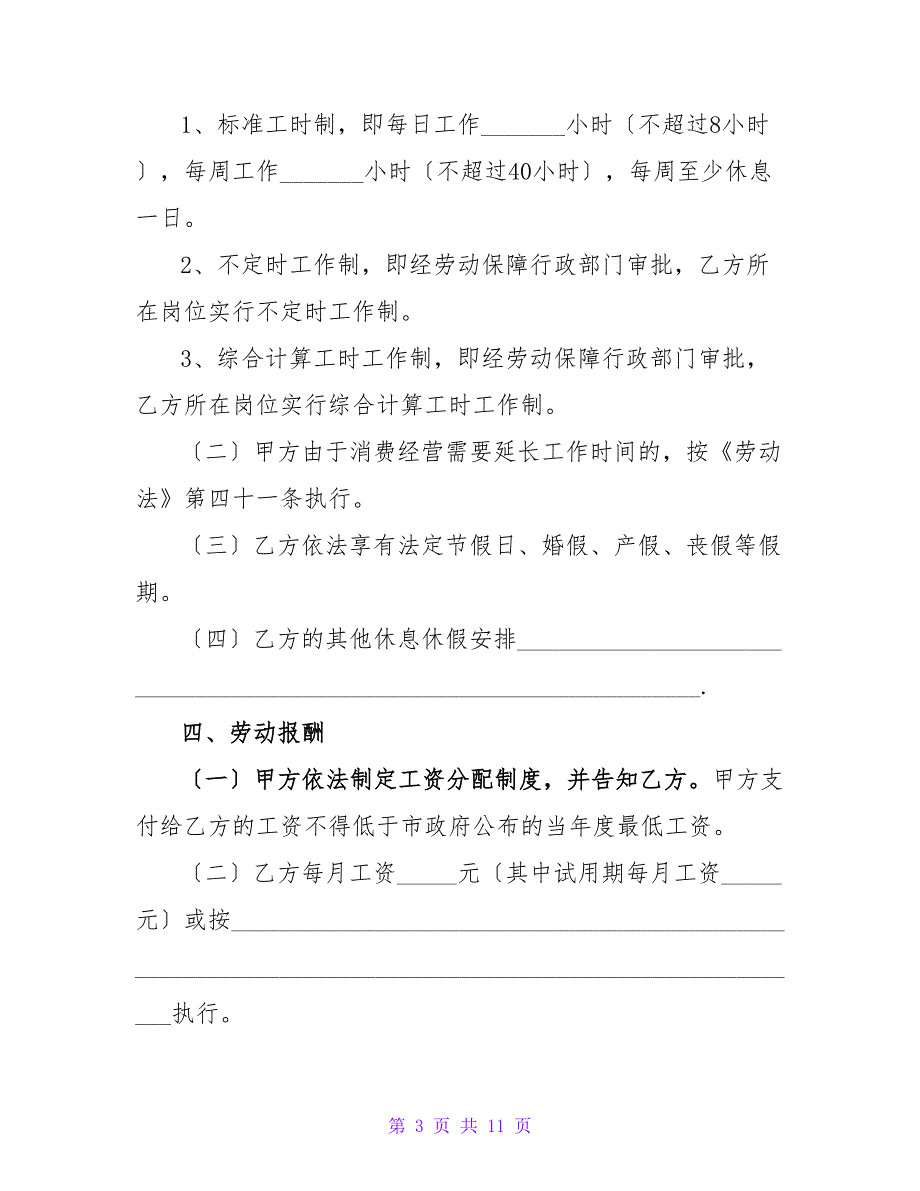 1、标准工时制，即每日工作_______小时〔不超过8小时
〕，每周工作_______小时〔不超过40小时〕，每周至少休息
一日。
2、不定时工作制，即经劳动保障行政部门审批，乙方所
在岗位实行不定时工作制。
3、综合计算工时工作制，即经劳动保障行政部门审批，
乙方所在岗位实行综合计算工时工作制。
〔二〕甲方由于消费经营需要延长工作时间的，按《劳动
法》第四十一条执行。
〔三〕乙方依法享有法定节假日、婚假、产假、丧假等假
期。
〔四〕乙方的其他休息休假安排______________________
_______________________________________________.
四、劳动报酬
〔一〕甲方依法制定工资分配制度，并告知乙方。甲方支
付给乙方的工资不得低于市政府公布的当年度最低工资。
〔二〕乙方每月工资_____元〔其中试用期每月工资_____
元〕或按______________________________________________
______________________________________________________
___执行。
第 3 页 共 11 页